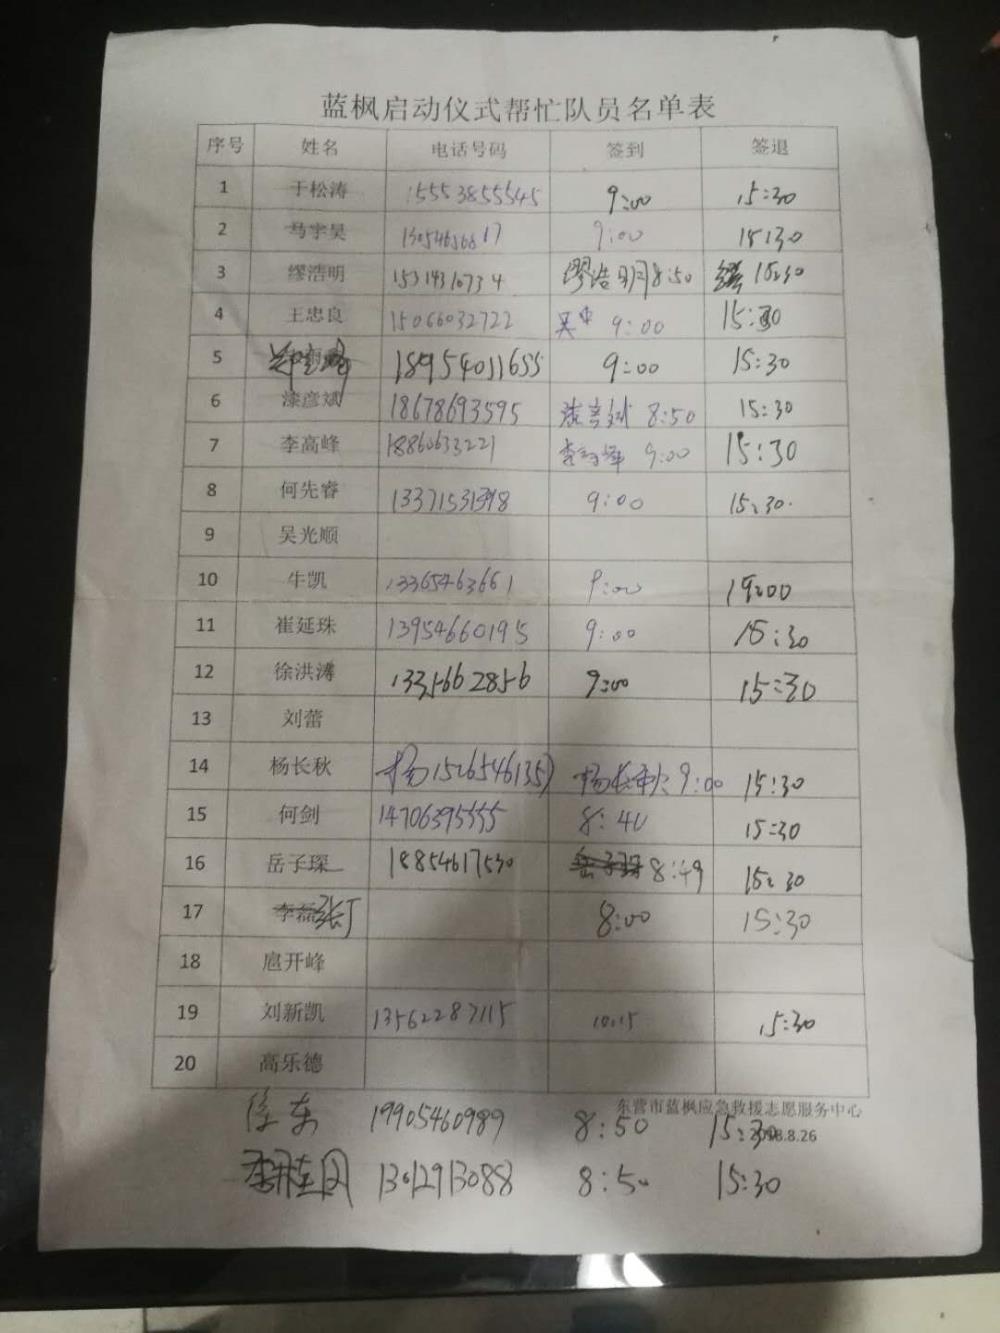 蓝枫启动仪式帮忙队员名单表
序号 姓名 电话号码 签到 签退
1 于松涛 15553855545 9:00 15:30
2 马宇昊 9:00 15:30
3 缪浩明 15314316734 缪浩明 8:50 15:30
4 王忠良 15066032722 9:00 15:30
5 18954011655 9:00 15:30
6 漆彦斌 18678693595 漆彦斌 8:50 15:30
7 李高峰 18860633221 李高峰 9:00 15:30
8 何先睿 9:00 15:30
9 吴光顺
10 牛凯 13365463661 9:00
11 崔延珠 13954660195 9:00 15:30
12 徐洪涛 1335662856 9:00 15:30
13 刘蕾
14 杨长秋 杨 杨长秋 9:00 15:30
15 何剑 14706395555 8:40 15:30
16 岳子琛 18854617530 岳子琛 8:49 15:30
17 李磊 张丁 8:00 15:30
18 扈开峰
19 刘新凯 13562287115 10:15 15:30
20 高乐德
东营市蓝枫应急救援志愿服务中心
徐东 19905460989 8:50 15:30
2018.8.26
13012913088 8:50 15:30